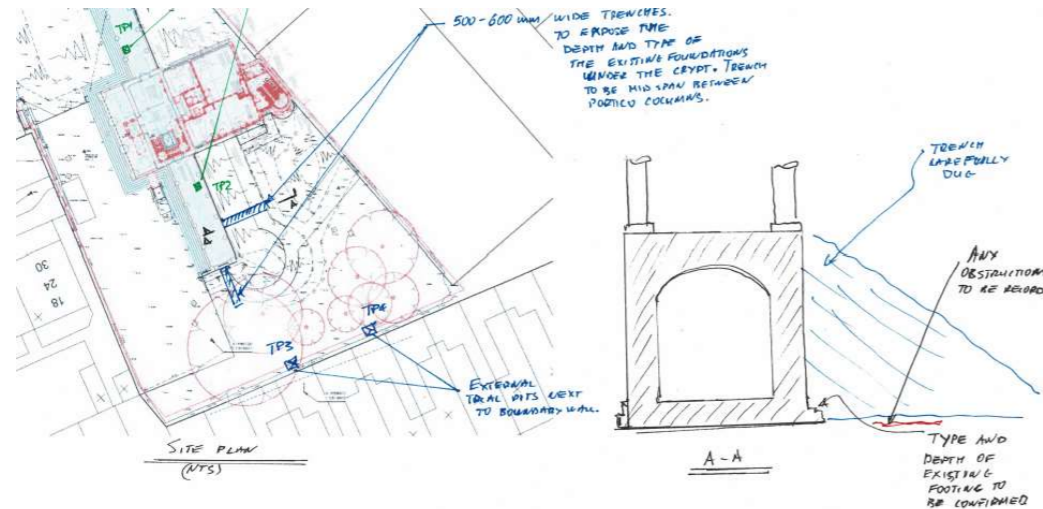 TP1
500-600 mm WIDE TRENCHES.
TO EXPOSE THE
DEPTH AND TYPE OF
THE EXISTING FOUNDATIONS
UNDER THE CRYPT. TRENCH
TO BE MID SPAN BETWEEN
PORTICO COLUMNS.
TP2
A
A
TP3
TP4
18
24
30
EXTERNAL
TRIAL PITS NEXT
TO BOUNDARY WALL.
SITE PLAN
(NTS)
TRENCH
CAREFULLY
DUG
ANY
OBSTRUCTION
TO BE RECORD
A-A
TYPE AND
DEPTH OF
EXISTING
FOOTING TO
BE CONFIRMED